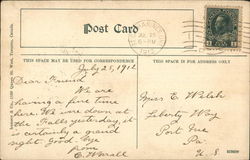 Post Card
THIS SPACE MAY BE USED FOR CORRESPONDENCE
THIS SPACE IS FOR ADDRESS ONLY
July 28, 1912
Dear Friend
We are
having a fine time
here. We were down at
the Falls yesterday, it
is certainly a grand
sight. Good Bye
from
Miss E. Welsh
Liberty Way
Port Vue
Pa.
U.S.